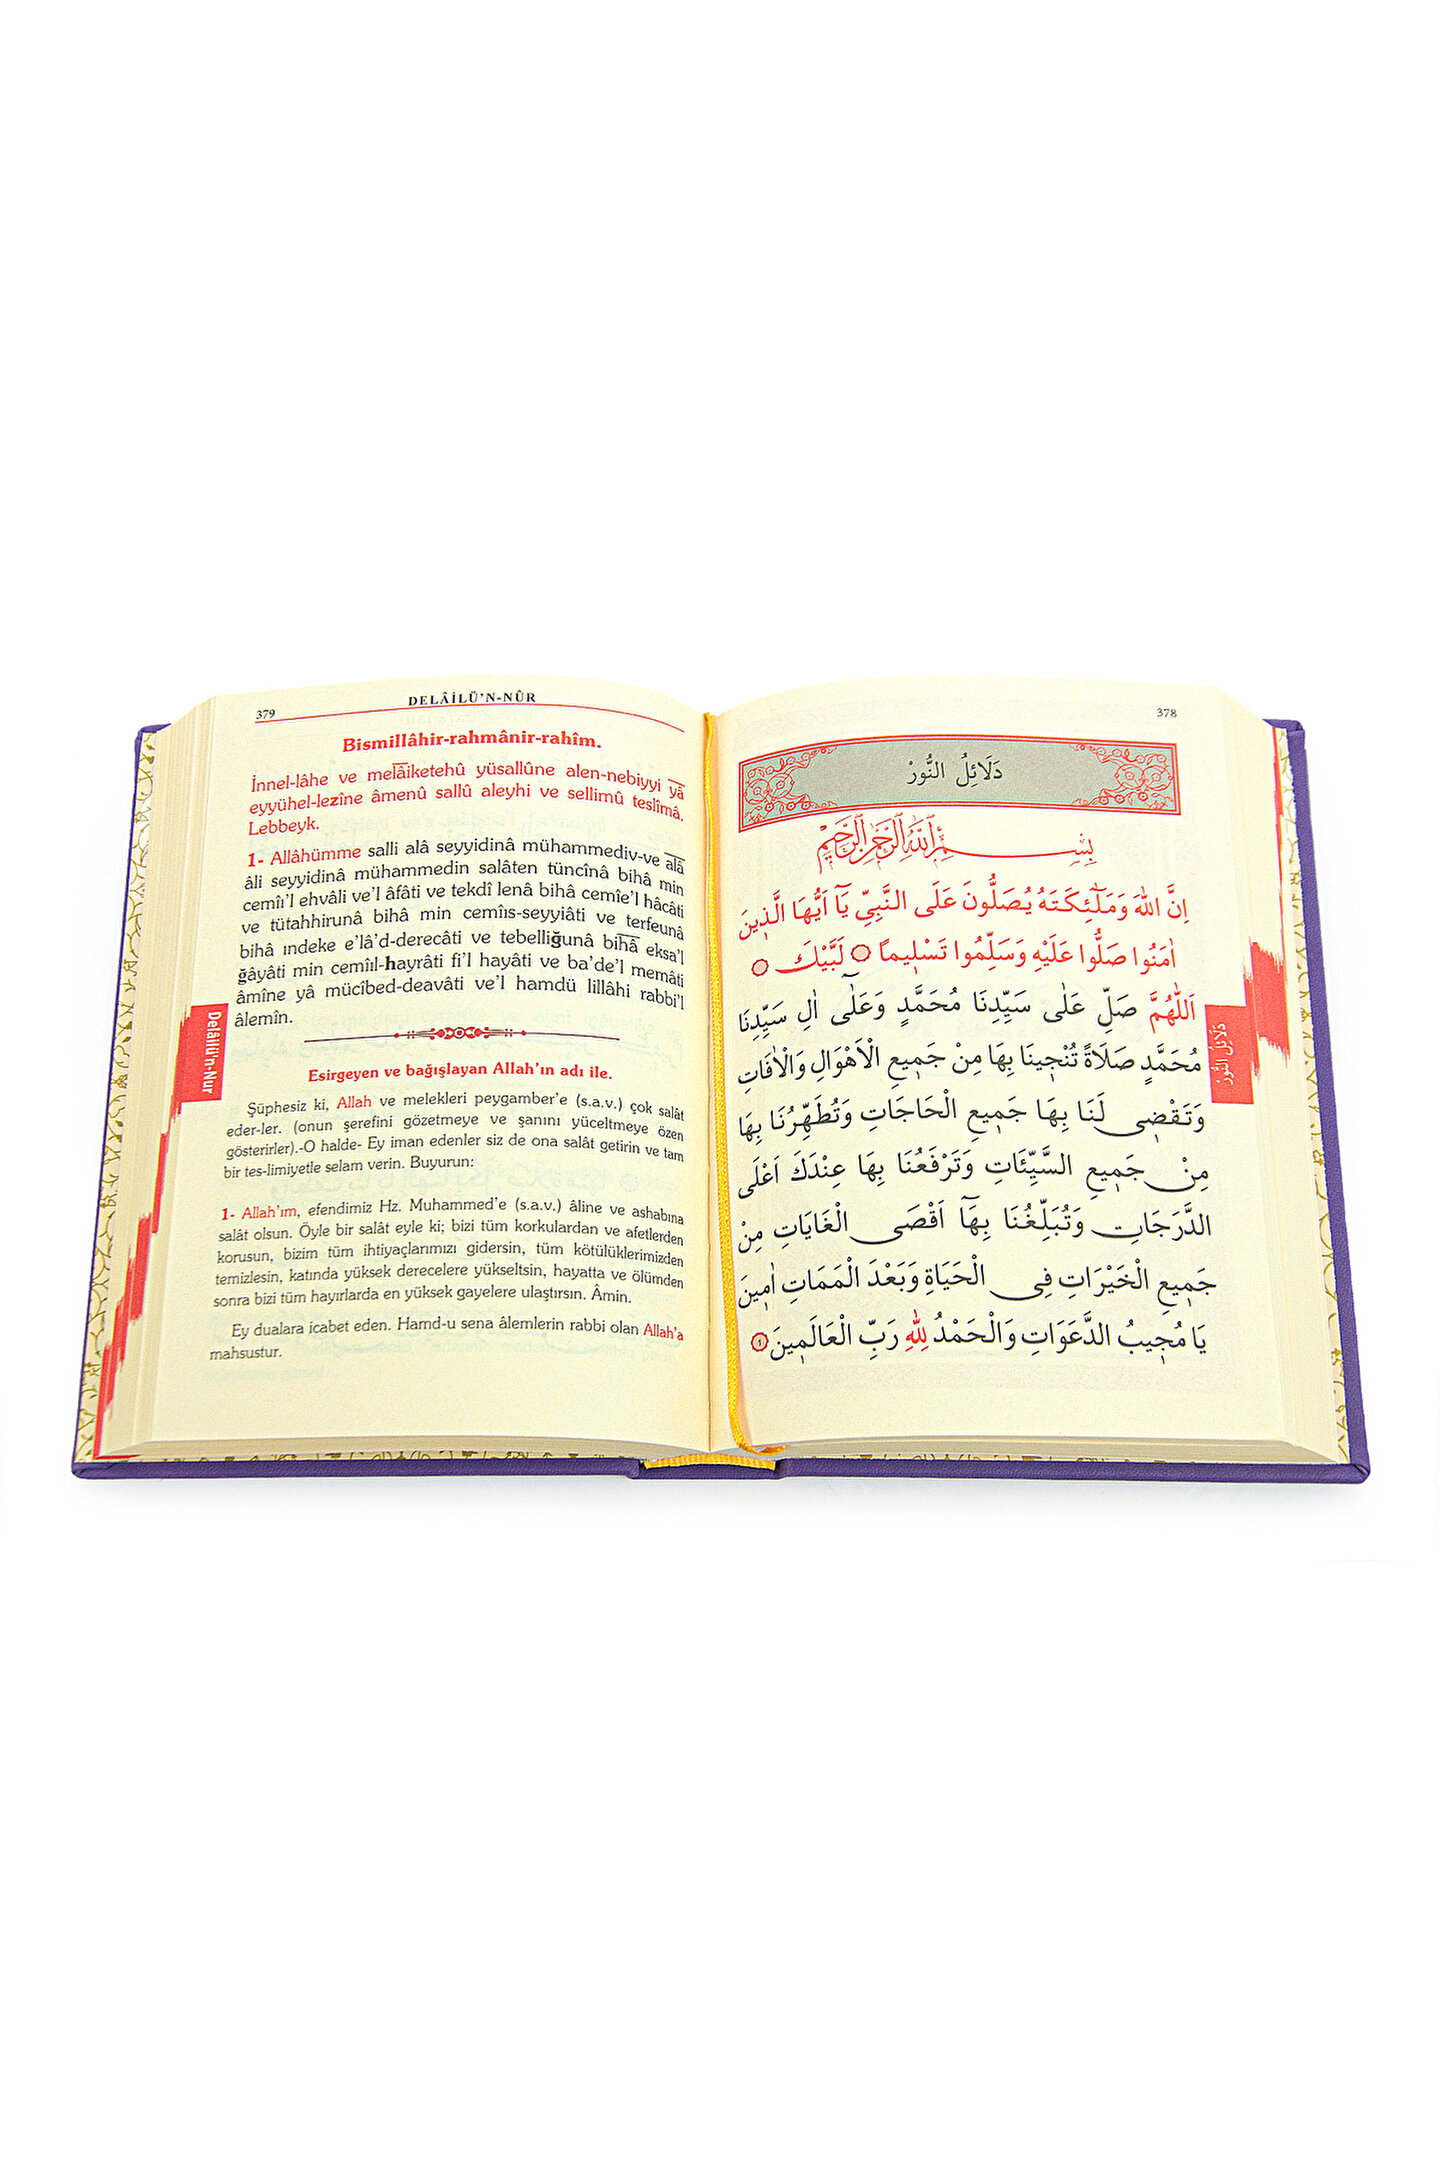 378
دَلَائِلُ النُّورْ
بِسْمِ اللّٰهِ الرَّحْمٰنِ الرَّحِيمِ
اِنَّ اللّٰهَ وَمَلٰٓئِكَتَهُ يُصَلُّونَ عَلَى النَّبِيِّ يَٓا اَيُّهَا الَّذِينَ
اٰمَنُوا صَلُّوا عَلَيْهِ وَسَلِّمُوا تَسْلِيمًا لَبَّيْكَ
اَللّٰهُمَّ صَلِّ عَلٰى سَيِّدِنَا مُحَمَّدٍ وَعَلٰٓى اٰلِ سَيِّدِنَا
مُحَمَّدٍ صَلَاةً تُنْجِينَا بِهَا مِنْ جَمِيعِ الْاَهْوَالِ وَالْاٰفَاتِ
وَتَقْضِى لَنَا بِهَا جَمِيعِ الْحَاجَاتِ وَتُطَهِّرُنَا بِهَا
مِنْ جَمِيعِ السَّيِّئَاتِ وَتَرْفَعُنَا بِهَا عِنْدَكَ اَعْلَى
الدَّرَجَاتِ وَتُبَلِّغُنَا بِهَٓا اَقْصَى الْغَايَاتِ مِنْ
جَمِيعِ الْخَيْرَاتِ فِى الْحَيَاةِ وَبَعْدَ الْمَمَاتِ اٰمِينَ
يَا مُجِيبُ الدَّعَوَاتِ وَالْحَمْدُ لِلّٰهِ رَبِّ الْعَالَمِينَ ١
دَلَائِلُ النُّورْ
379
DELÂİLÜ'N-NÛR
Bismillâhir-rahmânir-rahîm.
İnnel-lâhe ve melâiketehû yüsallûne alen-nebiyyi yâ
eyyühel-lezîne âmenû sallû aleyhi ve sellimû teslîmâ.
Lebbeyk.
1- Allâhümme salli alâ seyyidinâ mühammediv-ve alâ
âli seyyidinâ mühammedin salâten tüncînâ bihâ min
cemîı'l ehvâli ve'l âfâti ve tekdî lenâ bihâ cemîe'l hâcâti
ve tütahhirunâ bihâ min cemîıs-seyyiâti ve terfeunâ
bihâ ındeke e'lâ'd-derecâti ve tebelliğunâ bihâ eksa'l
ğâyâti min cemîıl-hayrâti fi'l hayâti ve ba'de'l memâti
âmîne yâ mücîbed-deavâti ve'l hamdü lillâhi rabbi'l
âlemîn.
Esirgeyen ve bağışlayan Allah'ın adı ile.
Şüphesiz ki, Allah ve melekleri peygamber'e (s.a.v.) çok salât
eder-ler. (onun şerefini gözetmeye ve şanını yüceltmeye özen
gösterirler).-O halde- Ey iman edenler siz de ona salât getirin ve tam
bir tes-limiyetle selam verin. Buyurun:
1- Allah'ım, efendimiz Hz. Muhammed'e (s.a.v.) âline ve ashabına
salât olsun. Öyle bir salât eyle ki; bizi tüm korkulardan ve afetlerden
korusun, bizim tüm ihtiyaçlarımızı gidersin, tüm kötülüklerimizden
temizlesin, katında yüksek derecelere yükseltsin, hayatta ve ölümden
sonra bizi tüm hayırlarda en yüksek gayelere ulaştırsın. Âmin.
Ey dualara icabet eden. Hamd-u sena âlemlerin rabbi olan Allah'a
mahsustur.
Delâilü'n-Nur